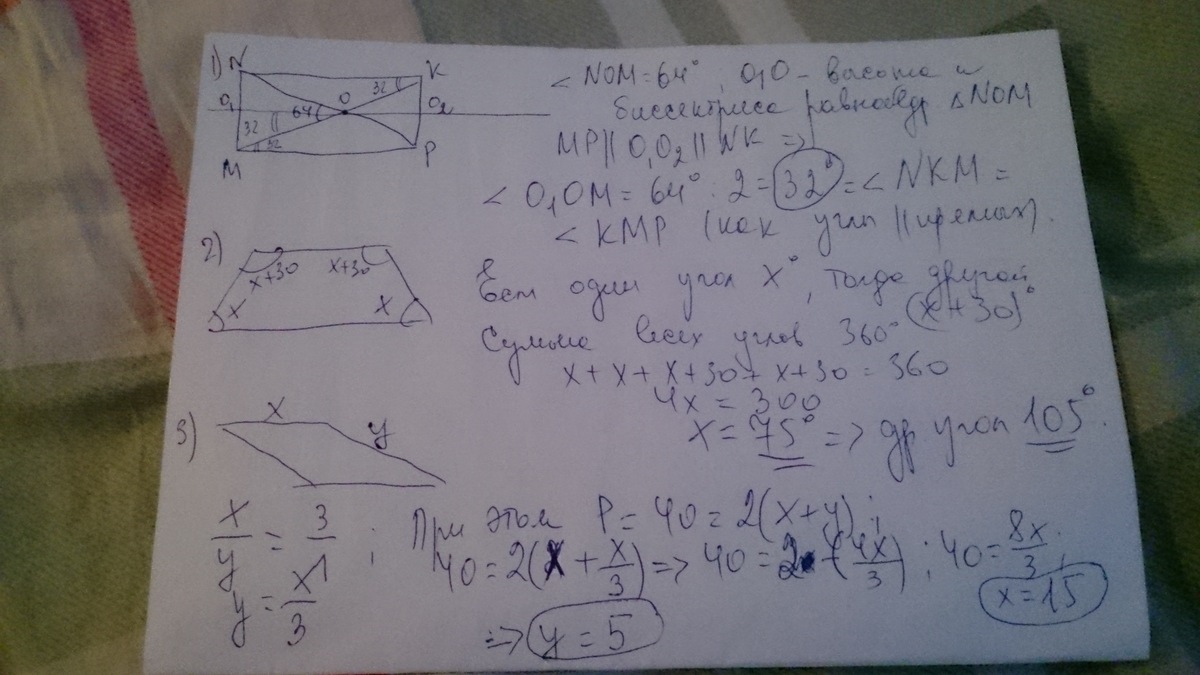 1) N K
O₁ 64 O 32 O₂
32
32
M P
< NOM = 64°, O₁O - высота и
биссектриса равнобедр. △ NOM
MP || O₁O₂ || NK =>
< O₁OM = 64° : 2 = 32° = < NKM =
< KMP (как углы || прямых).
2) x+30 x+30
x x
Если один угол x°, тогда другой
(x+30)°
Сумма всех углов 360°
x + x + x + 30 + x + 30 = 360
4x = 300
x = 75° => др угол 105°.
3) x
y
x/y = 3/1 ; При этом P = 40 = 2(x+y) ;
y = x/3
40 = 2(x + x/3) => 40 = 2 · (4x/3) ; 40 = 8x/3 ;
x = 15
=> y = 5